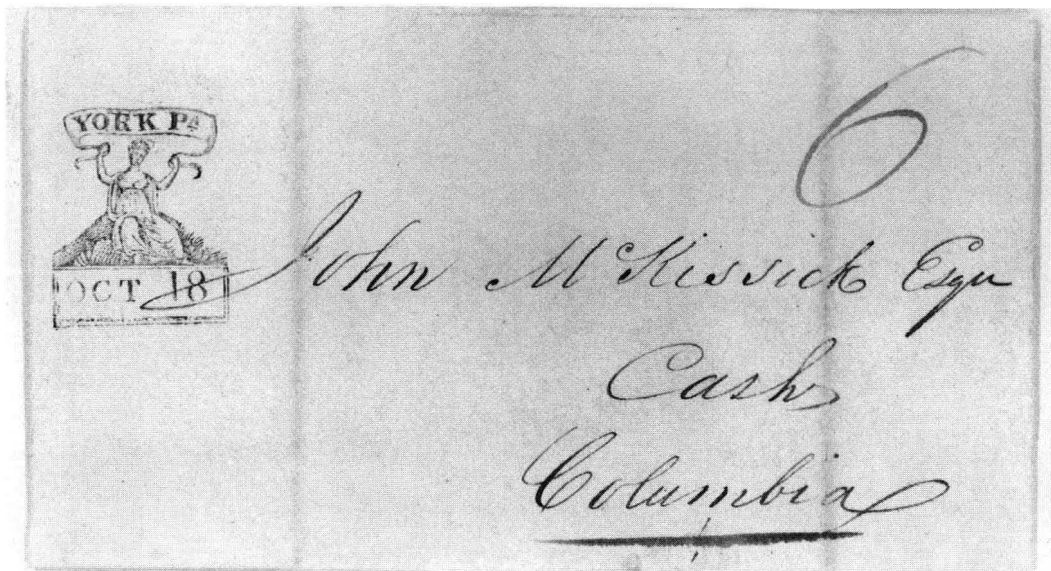 YORK Pa
OCT 18
6
John McKissick Esqr
Cashr
Columbia